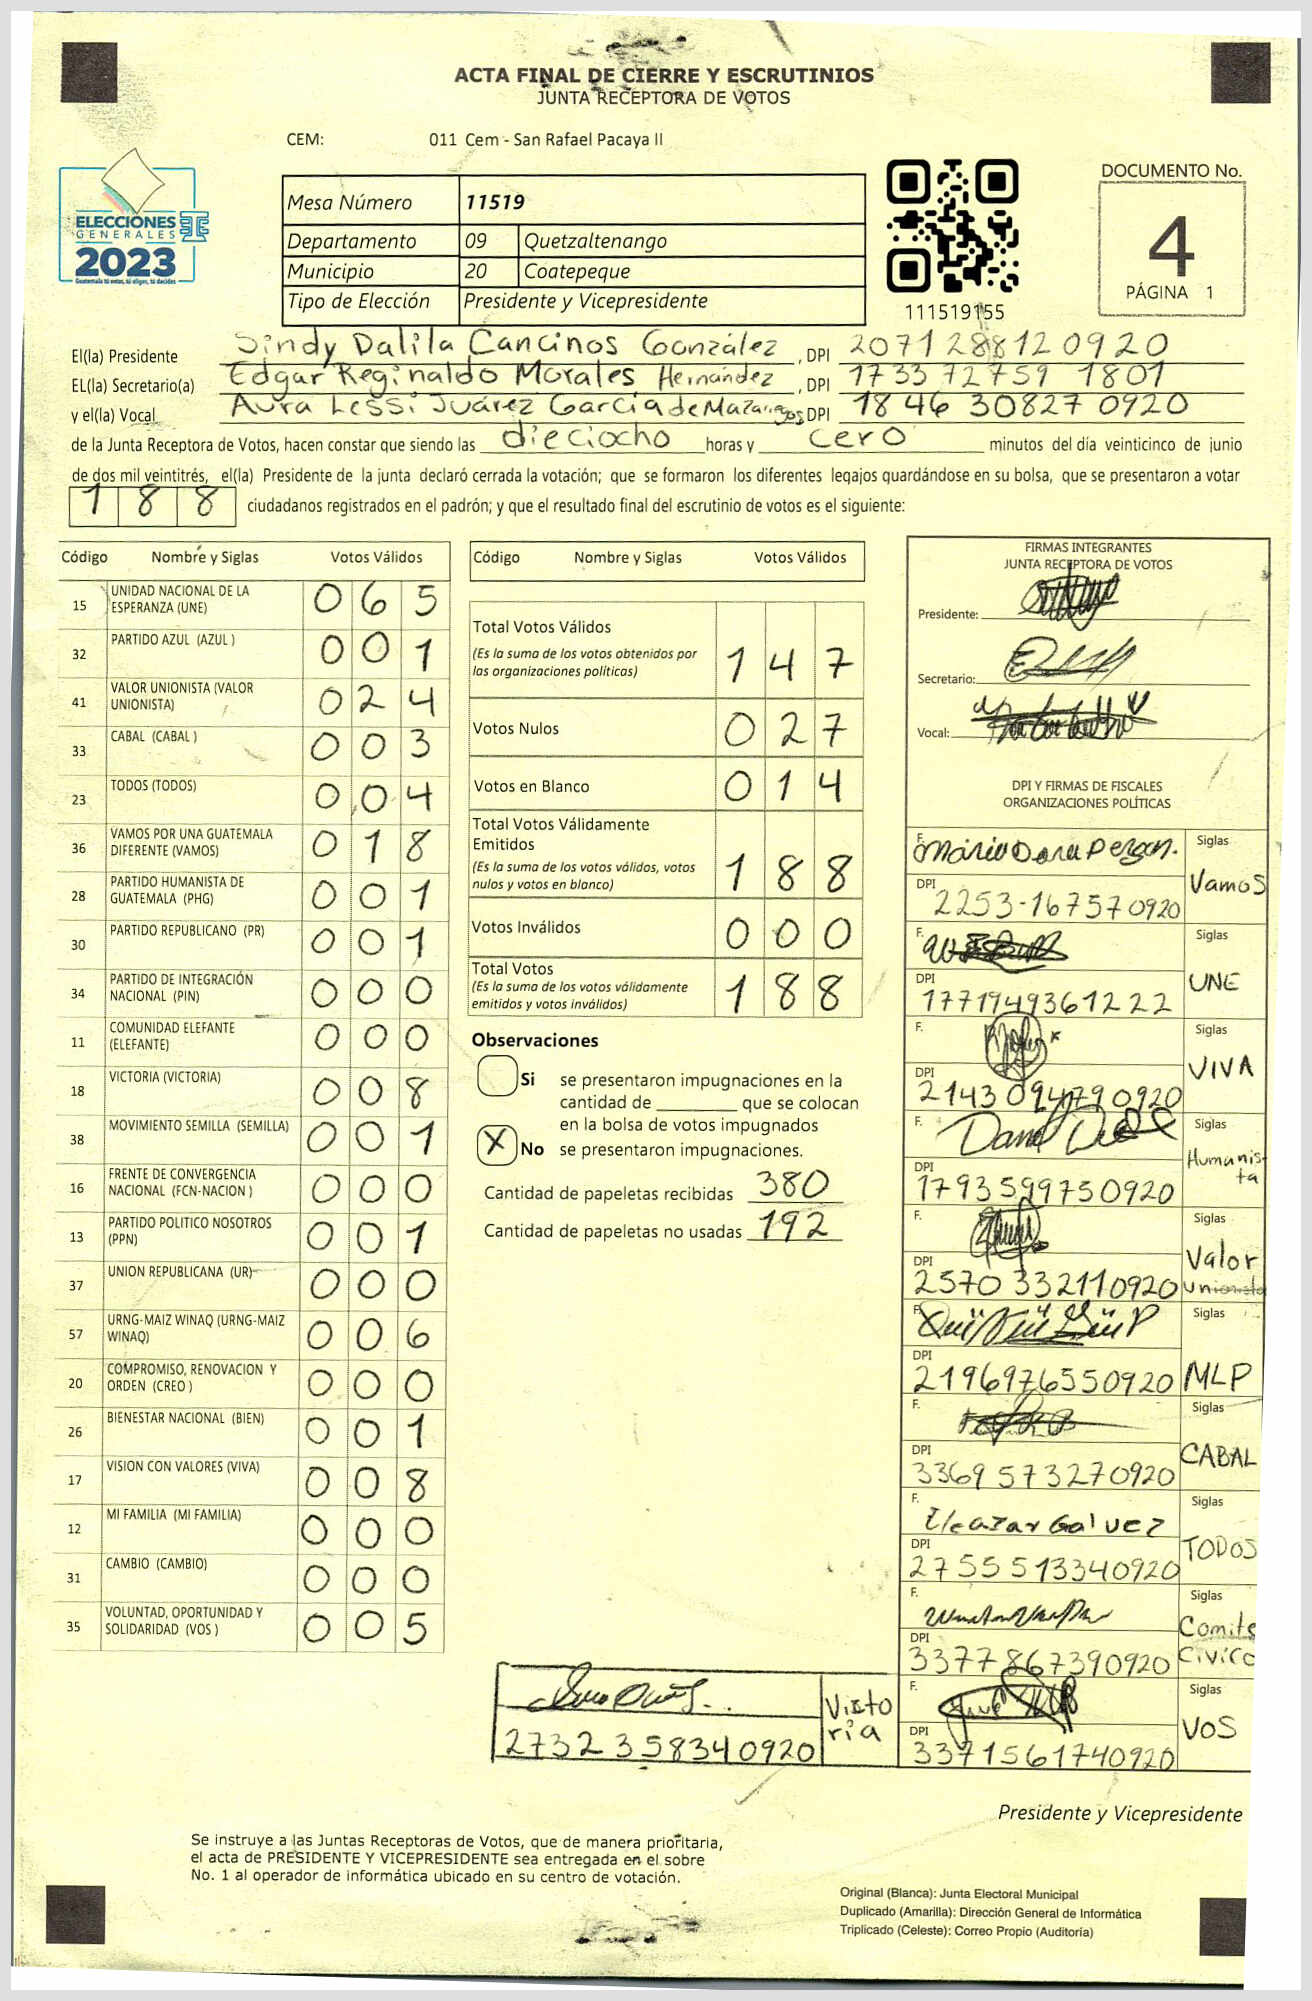 ACTA FINAL DE CIERRE Y ESCRUTINIOS
JUNTA RECEPTORA DE VOTOS
CEM: 011 Cem - San Rafael Pacaya II
ELECCIONES
GENERALES
2023
Guatemala tú votas, tú eliges, tú decides
Mesa Número 11519
Departamento 09 Quetzaltenango
Municipio 20 Coatepeque
Tipo de Elección Presidente y Vicepresidente
111519155
DOCUMENTO No.
4
PÁGINA 1
El(la) Presidente Sindy Dalila Cancinos González, DPI 2071288120920
EL(la) Secretario(a) Edgar Reginaldo Morales Hernández, DPI 1733 72759 1801
y el(la) Vocal Aura Lessi Juárez García de Mazariegos DPI 1846 30827 0920
de la Junta Receptora de Votos, hacen constar que siendo las dieciocho horas y cero minutos del día veinticinco de junio
de dos mil veintitrés, el(la) Presidente de la junta declaró cerrada la votación; que se formaron los diferentes legajos guardándose en su bolsa, que se presentaron a votar
188 ciudadanos registrados en el padrón; y que el resultado final del escrutinio de votos es el siguiente:
Código Nombre y Siglas Votos Válidos
15 UNIDAD NACIONAL DE LA ESPERANZA (UNE) 065
32 PARTIDO AZUL (AZUL ) 001
41 VALOR UNIONISTA (VALOR UNIONISTA) 024
33 CABAL (CABAL ) 003
23 TODOS (TODOS) 004
36 VAMOS POR UNA GUATEMALA DIFERENTE (VAMOS) 018
28 PARTIDO HUMANISTA DE GUATEMALA (PHG) 001
30 PARTIDO REPUBLICANO (PR) 001
34 PARTIDO DE INTEGRACIÓN NACIONAL (PIN) 000
11 COMUNIDAD ELEFANTE (ELEFANTE) 000
18 VICTORIA (VICTORIA) 008
38 MOVIMIENTO SEMILLA (SEMILLA) 001
16 FRENTE DE CONVERGENCIA NACIONAL (FCN-NACION ) 000
13 PARTIDO POLITICO NOSOTROS (PPN) 001
37 UNION REPUBLICANA (UR) 000
57 URNG-MAIZ WINAQ (URNG-MAIZ WINAQ) 006
20 COMPROMISO, RENOVACION Y ORDEN (CREO ) 000
26 BIENESTAR NACIONAL (BIEN) 001
17 VISION CON VALORES (VIVA) 008
12 MI FAMILIA (MI FAMILIA) 000
31 CAMBIO (CAMBIO) 000
35 VOLUNTAD, OPORTUNIDAD Y SOLIDARIDAD (VOS ) 005
Código Nombre y Siglas Votos Válidos
Total Votos Válidos
(Es la suma de los votos obtenidos por
las organizaciones políticas) 147
Votos Nulos 027
Votos en Blanco 014
Total Votos Válidamente
Emitidos
(Es la suma de los votos válidos, votos
nulos y votos en blanco) 188
Votos Inválidos 000
Total Votos
(Es la suma de los votos válidamente
emitidos y votos inválidos) 188
Observaciones
Si se presentaron impugnaciones en la
cantidad de ________ que se colocan
en la bolsa de votos impugnados
X No se presentaron impugnaciones.
Cantidad de papeletas recibidas 380
Cantidad de papeletas no usadas 192
FIRMAS INTEGRANTES
JUNTA RECEPTORA DE VOTOS
Presidente:
Secretario:
Vocal:
DPI Y FIRMAS DE FISCALES
ORGANIZACIONES POLÍTICAS
F. Siglas
DPI 2253-167570920 Vamos
F. Siglas
DPI 1771949361222 UNE
F. Siglas
DPI 2143094790920 VIVA
F. Siglas
DPI 1793599750920 Humanista
F. Siglas
DPI 2570332110920 Valor Unionista
F. Siglas
DPI 2196976550920 MLP
F. Siglas
DPI 3369573270920 CABAL
F. Eleazar Galvez Siglas
DPI 2755513340920 TODOS
F. Siglas
DPI 3377867390920 Comite Civico
F. Siglas
DPI 3371561740920 VOS
2732358340920 Victoria
Presidente y Vicepresidente
Se instruye a las Juntas Receptoras de Votos, que de manera prioritaria,
el acta de PRESIDENTE Y VICEPRESIDENTE sea entregada en el sobre
No. 1 al operador de informática ubicado en su centro de votación.
Original (Blanca): Junta Electoral Municipal
Duplicado (Amarilla): Dirección General de Informática
Triplicado (Celeste): Correo Propio (Auditoría)